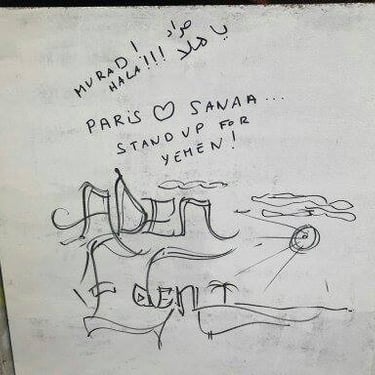 MURAD! مراد
HALA!!! يا هلا
PARIS ♡ SANAA...
STAND UP FOR
YEMEN!
ADEN
EDEN